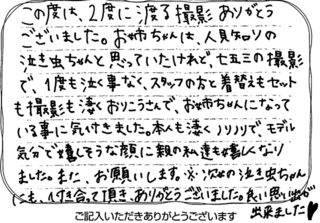 この度は、2度に渡る撮影ありがとう
ございました。お姉ちゃんは、人見知りの
泣き虫ちゃんと思っていたけれど、七五三の撮影
で、1度も泣く事なく、スタッフの方と着替えもセット
も撮影も凄くおりこうさんで、お姉ちゃんになって
いる事に気付きました。本人も凄くノリノリで、モデル
気分で嬉しそうな顔に親の私達も嬉しくなり
ました。また、お願いします。※次女の泣き虫ちゃん
にも、付き合って頂き、ありがとうございました。良い思い出が
出来ました♥
ご記入いただきありがとうございます